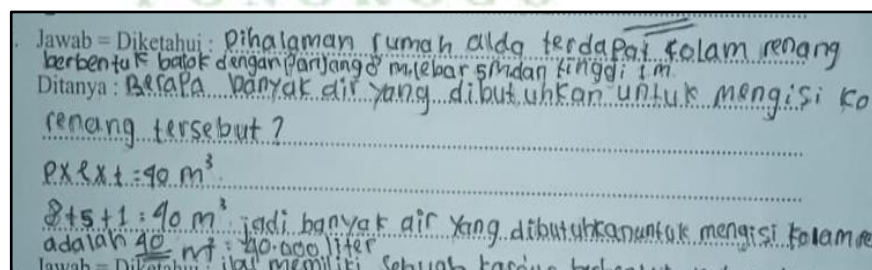 Jawab = Diketahui : Dihalaman rumah alda terdapat kolam renang
berbentuk balok dengan panjang 8 m, lebar 5m dan tinggi 1 m.
Ditanya : Berapa banyak air yang dibutuhkan untuk mengisi ko
renang tersebut?
p x l x t = 40 m³
8+5+1 : 40 m³ jadi banyak air yang dibutuhkan untuk mengisi kolam re
adalah 40 m³ = 40.000 liter
Jawab = Diketahui : memiliki sebuah